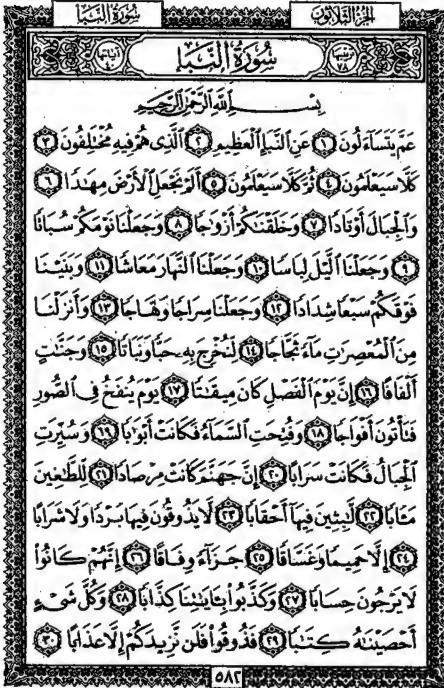 سُورَةُ النَّبَإِ الجُزْءُ الثَّلَاثُونَ
سُورَةُ النَّبَإِ
بِسْمِ اللَّهِ الرَّحْمَٰنِ الرَّحِيمِ
عَمَّ يَتَسَآءَلُونَ ١ عَنِ ٱلنَّبَإِ ٱلْعَظِيمِ ٢ ٱلَّذِى هُمْ فِيهِ مُخْتَلِفُونَ ٣
كَلَّا سَيَعْلَمُونَ ٤ ثُمَّ كَلَّا سَيَعْلَمُونَ ٥ أَلَمْ نَجْعَلِ ٱلْأَرْضَ مِهَٰدًا ٦
وَٱلْجِبَالَ أَوْتَادًا ٧ وَخَلَقْنَٰكُمْ أَزْوَٰجًا ٨ وَجَعَلْنَا نَوْمَكُمْ سُبَاتًا
٩ وَجَعَلْنَا ٱلَّيْلَ لِبَاسًا ١٠ وَجَعَلْنَا ٱلنَّهَارَ مَعَاشًا ١١ وَبَنَيْنَا
فَوْقَكُمْ سَبْعًا شِدَادًا ١٢ وَجَعَلْنَا سِرَاجًا وَهَّاجًا ١٣ وَأَنزَلْنَا
مِنَ ٱلْمُعْصِرَٰتِ مَآءً ثَجَّاجًا ١٤ لِّنُخْرِجَ بِهِۦ حَبًّا وَنَبَاتًا ١٥ وَجَنَّٰتٍ
أَلْفَافًا ١٦ إِنَّ يَوْمَ ٱلْفَصْلِ كَانَ مِيقَٰتًا ١٧ يَوْمَ يُنفَخُ فِى ٱلصُّورِ
فَتَأْتُونَ أَفْوَاجًا ١٨ وَفُتِحَتِ ٱلسَّمَآءُ فَكَانَتْ أَبْوَٰبًا ١٩ وَسُيِّرَتِ
ٱلْجِبَالُ فَكَانَتْ سَرَابًا ٢٠ إِنَّ جَهَنَّمَ كَانَتْ مِرْصَادًا ٢١ لِّلطَّٰغِينَ
مَـَٔابًا ٢٢ لَّٰبِثِينَ فِيهَآ أَحْقَابًا ٢٣ لَّا يَذُوقُونَ فِيهَا بَرْدًا وَلَا شَرَابًا
٢٤ إِلَّا حَمِيمًا وَغَسَّاقًا ٢٥ جَزَآءً وِفَاقًا ٢٦ إِنَّهُمْ كَانُوا۟
لَا يَرْجُونَ حِسَابًا ٢٧ وَكَذَّبُوا۟ بِـَٔايَٰتِنَا كِذَّابًا ٢٨ وَكُلَّ شَىْءٍ
أَحْصَيْنَٰهُ كِتَٰبًا ٢٩ فَذُوقُوا۟ فَلَن نَّزِيدَكُمْ إِلَّا عَذَابًا ٣٠
٥٨٢